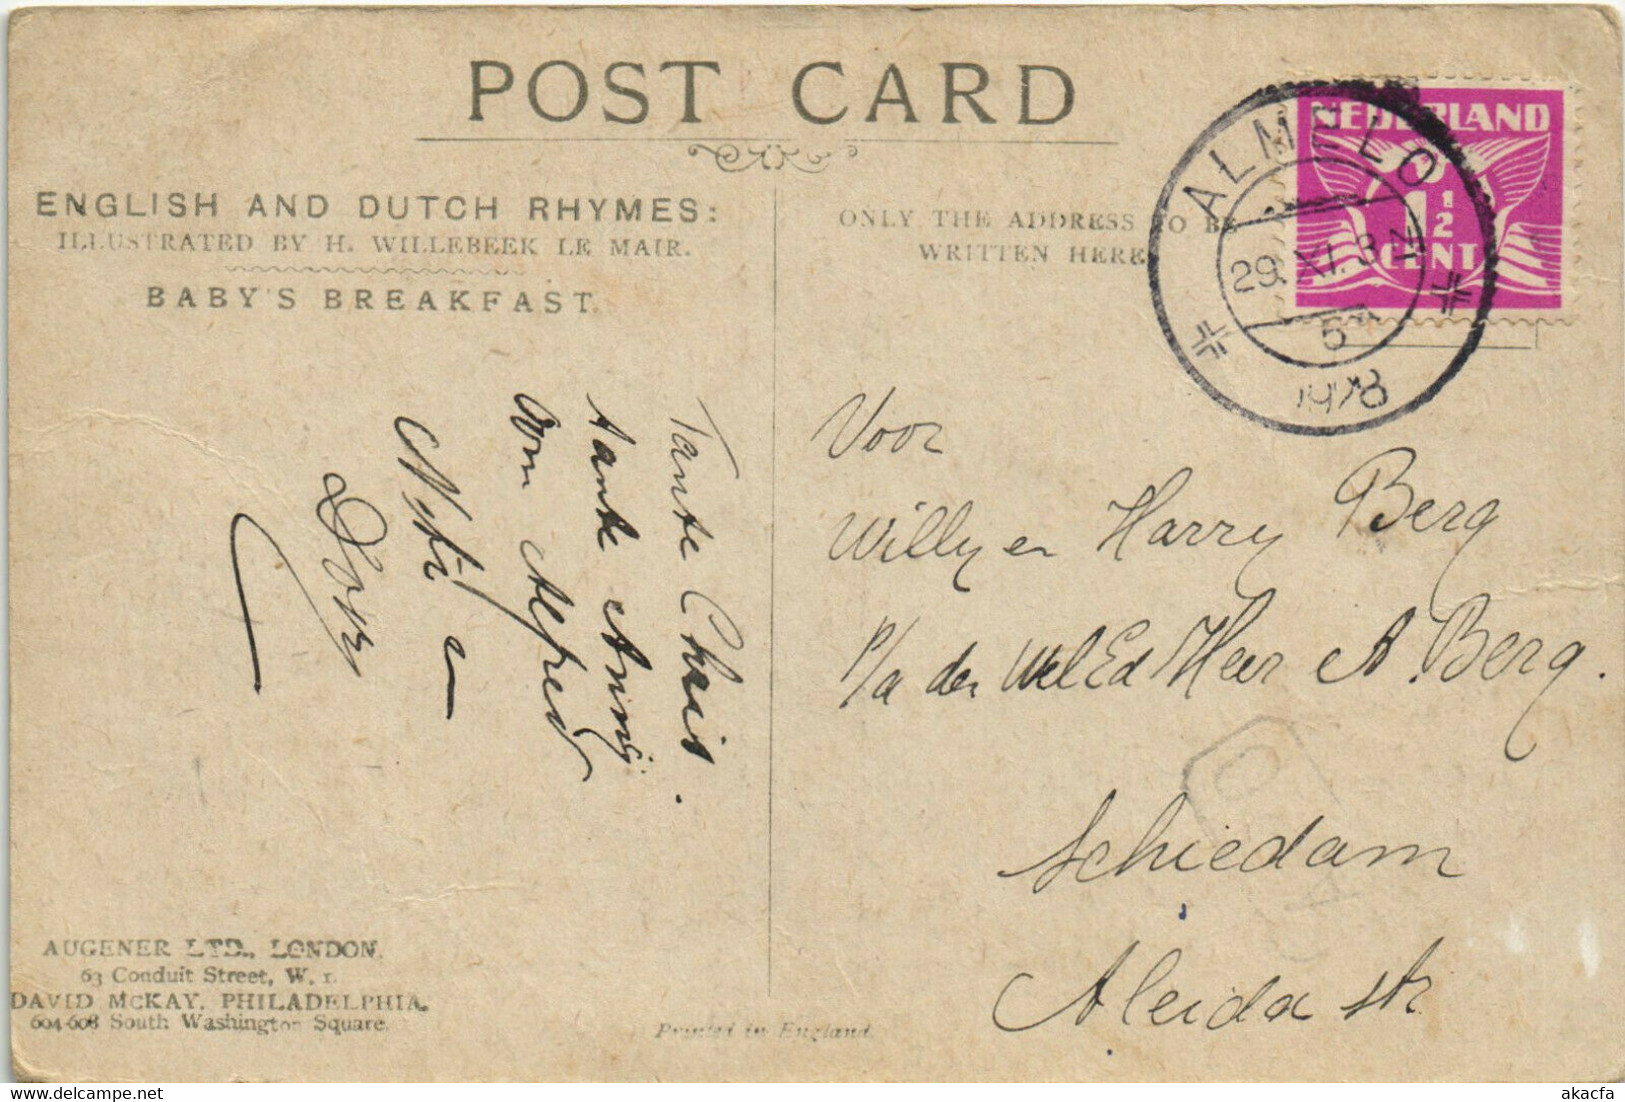 POST CARD
ENGLISH AND DUTCH RHYMES:
ILLUSTRATED BY H. WILLEBEEK LE MAIR.
BABY'S BREAKFAST.
ONLY THE ADDRESS TO BE
WRITTEN HERE
NEDERLAND
1½
CENT
ALMELO
29. XI. 3
5
Tante Chris.
tante Anny
Oom Alfred
Dory
Voor
Willy en Harry Berg
P/a den WelEd Heer A. Berg.
Schiedam
Aleida str
AUGENER LTD., LONDON.
63 Conduit Street, W. 1.
DAVID McKAY, PHILADELPHIA,
604-608 South Washington Square.
Printed in England.
akacfa